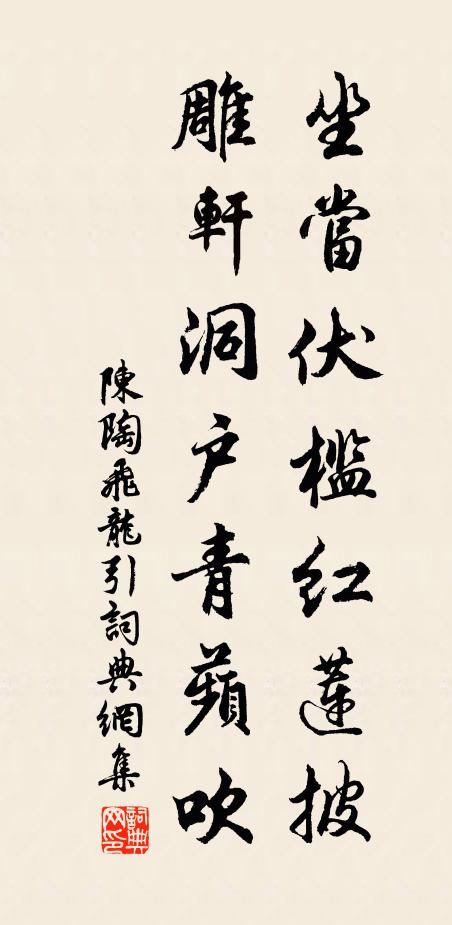 坐當伏檻紅蓮披
雕軒洞户青蘋吹
陳陶飛龍引詞典網集
詞典网印